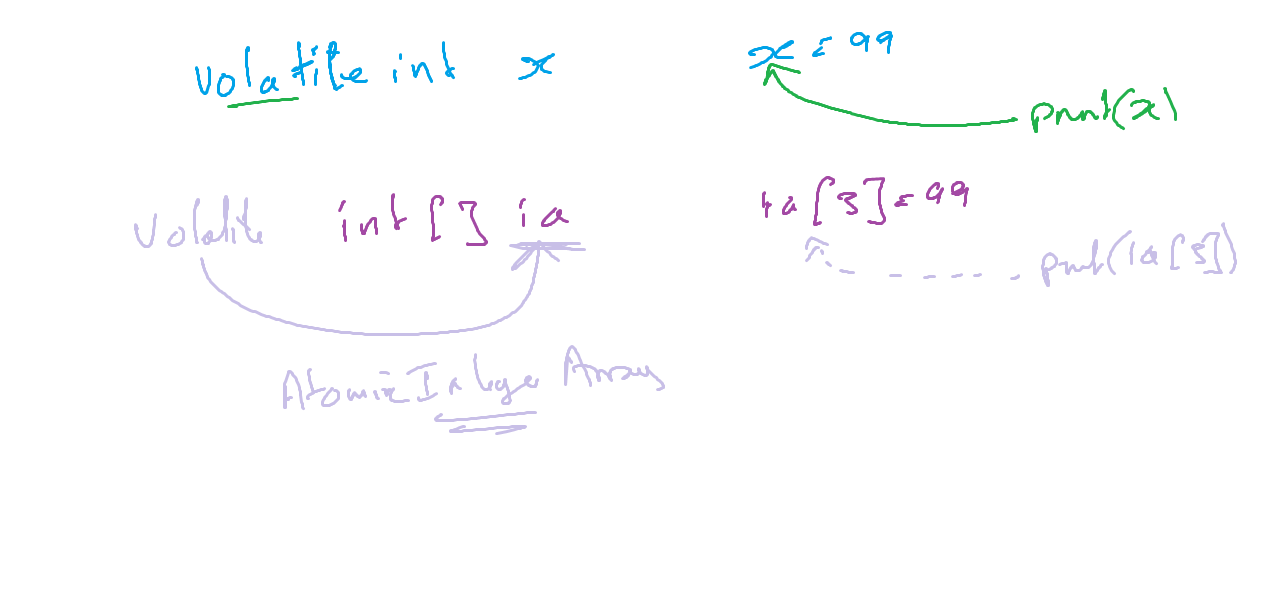 volatile int x x = 99
print(x)
volatile int[] ia ia[3] = 99
print(ia[3])
AtomicIntegerArray